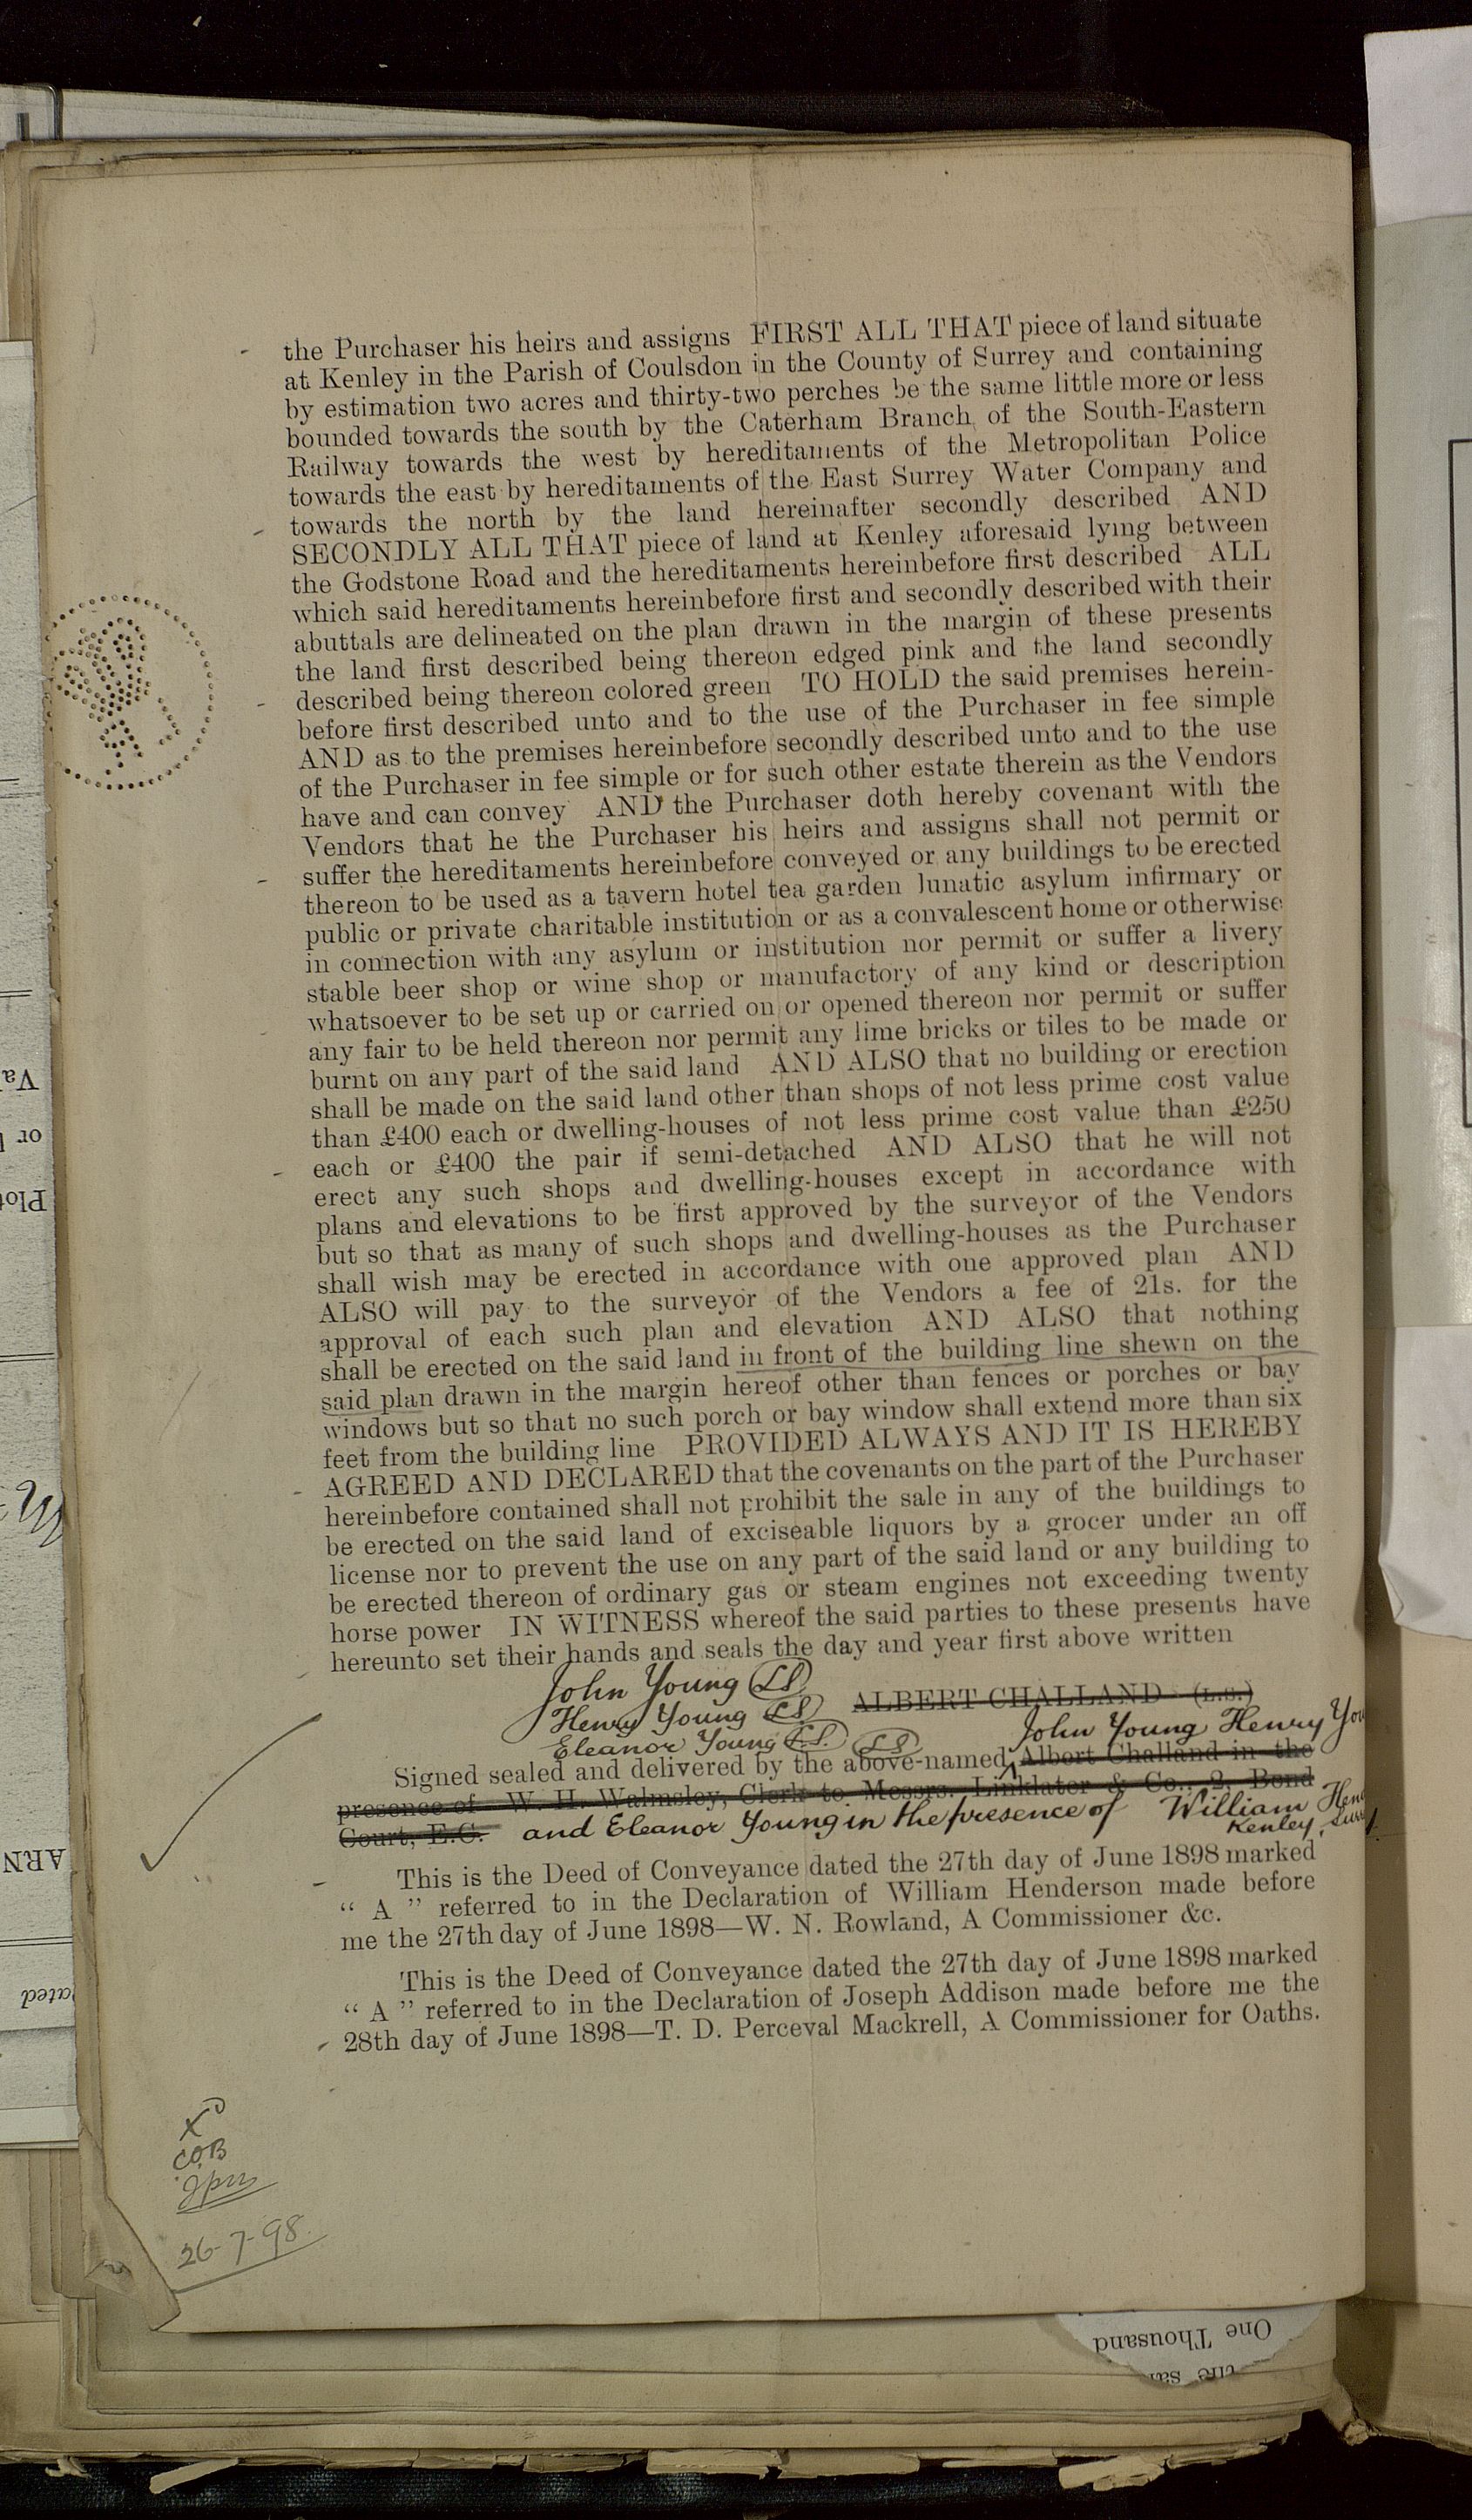 the Purchaser his heirs and assigns FIRST ALL THAT piece of land situate
at Kenley in the Parish of Coulsdon in the County of Surrey and containing
by estimation two acres and thirty-two perches be the same little more or less
bounded towards the south by the Caterham Branch of the South-Eastern
Railway towards the west by hereditaments of the Metropolitan Police
towards the east by hereditaments of the East Surrey Water Company and
towards the north by the land hereinafter secondly described AND
SECONDLY ALL THAT piece of land at Kenley aforesaid lying between
the Godstone Road and the hereditaments hereinbefore first described ALL
which said hereditaments hereinbefore first and secondly described with their
abuttals are delineated on the plan drawn in the margin of these presents
the land first described being thereon edged pink and the land secondly
described being thereon colored green TO HOLD the said premises herein-
before first described unto and to the use of the Purchaser in fee simple
AND as to the premises hereinbefore secondly described unto and to the use
of the Purchaser in fee simple or for such other estate therein as the Vendors
have and can convey AND the Purchaser doth hereby covenant with the
Vendors that he the Purchaser his heirs and assigns shall not permit or
suffer the hereditaments hereinbefore conveyed or any buildings to be erected
thereon to be used as a tavern hotel tea garden lunatic asylum infirmary or
public or private charitable institution or as a convalescent home or otherwise
in connection with any asylum or institution nor permit or suffer a livery
stable beer shop or wine shop or manufactory of any kind or description
whatsoever to be set up or carried on or opened thereon nor permit or suffer
any fair to be held thereon nor permit any lime bricks or tiles to be made or
burnt on any part of the said land AND ALSO that no building or erection
shall be made on the said land other than shops of not less prime cost value
than £400 each or dwelling-houses of not less prime cost value than £250
each or £400 the pair if semi-detached AND ALSO that he will not
erect any such shops and dwelling-houses except in accordance with
plans and elevations to be first approved by the surveyor of the Vendors
but so that as many of such shops and dwelling-houses as the Purchaser
shall wish may be erected in accordance with one approved plan AND
ALSO will pay to the surveyor of the Vendors a fee of 21s. for the
approval of each such plan and elevation AND ALSO that nothing
shall be erected on the said land in front of the building line shewn on the
said plan drawn in the margin hereof other than fences or porches or bay
windows but so that no such porch or bay window shall extend more than six
feet from the building line PROVIDED ALWAYS AND IT IS HEREBY
AGREED AND DECLARED that the covenants on the part of the Purchaser
hereinbefore contained shall not prohibit the sale in any of the buildings to
be erected on the said land of exciseable liquors by a grocer under an off
license nor to prevent the use on any part of the said land or any building to
be erected thereon of ordinary gas or steam engines not exceeding twenty
horse power IN WITNESS whereof the said parties to these presents have
hereunto set their hands and seals the day and year first above written
John Young LS
Henry Young LS ALBERT CHALLAND (L.S.)
Eleanor Young L.S. LS John Young Henry You
Signed sealed and delivered by the above-named Albert Challand in the
presence of W. H. Walmsley, Clerk to Messrs. Linklater & Co., 2, Bond
Court, E.C. and Eleanor Young in the presence of William Hen
Kenley, Surr
This is the Deed of Conveyance dated the 27th day of June 1898 marked
“ A ” referred to in the Declaration of William Henderson made before
me the 27th day of June 1898—W. N. Rowland, A Commissioner &c.
This is the Deed of Conveyance dated the 27th day of June 1898 marked
“ A ” referred to in the Declaration of Joseph Addison made before me the
28th day of June 1898—T. D. Perceval Mackrell, A Commissioner for Oaths.
COB
26-7-98
Va
or
Plot
ARN
ated
One Thousand